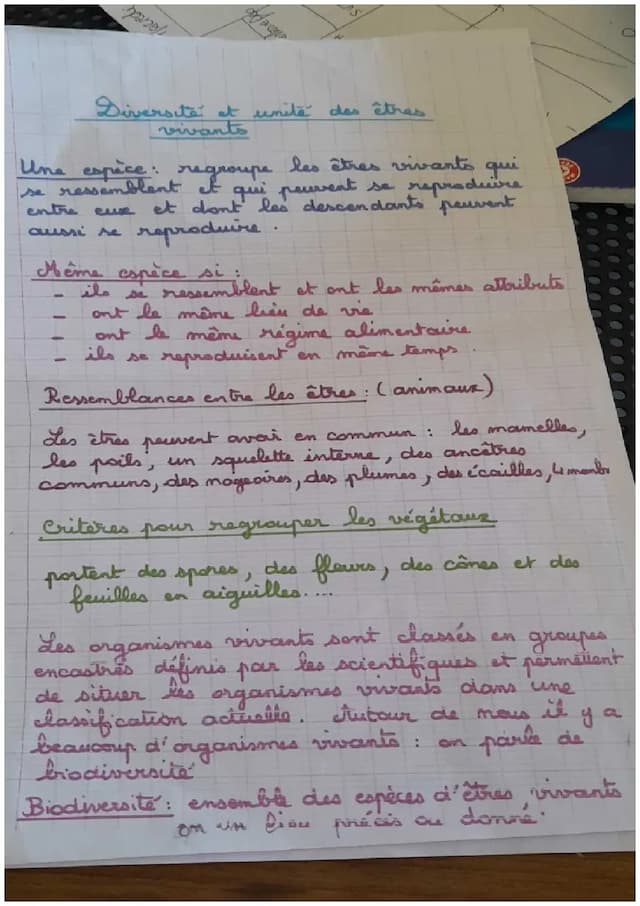 Diversité et unité des êtres
vivants
Une espèce : regroupe les êtres vivants qui
se ressemblent et qui peuvent se reproduire
entre eux et dont les descendants peuvent
aussi se reproduire.
Même espèce si :
- ils se ressemblent et ont les mêmes attributs
- ont le même lieu de vie
- ont le même régime alimentaire
- ils se reproduisent en même temps.
Ressemblances entre les êtres : (animaux)
Les êtres peuvent avoir en commun : les mamelles,
les poils, un squelette interne, des ancêtres
communs, des nageoires, des plumes, des écailles, 4 memb
Critères pour regrouper les végétaux
portent des spores, des fleurs, des cônes et des
feuilles en aiguilles....
Les organismes vivants sont classés en groupes
encastrés définis par les scientifiques et permettent
de situer les organismes vivants dans une
classification actuelle. Autour de nous il y a
beaucoup d'organismes vivants : on parle de
biodiversité
Biodiversité : ensemble des espèces d'êtres vivants
en un lieu précis ou donné.